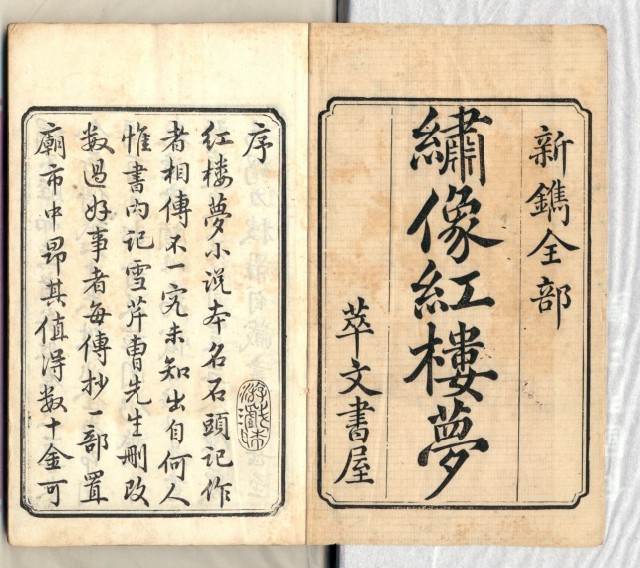 新鐫全部
繡像紅樓夢
萃文書屋
序
紅楼夢小说夲名石頭記作
者相傳不一究未知出自何人
惟書内记雪芹曹先生刪改
数過好事者每傳抄一部置
廟市中昂其值得数十金可